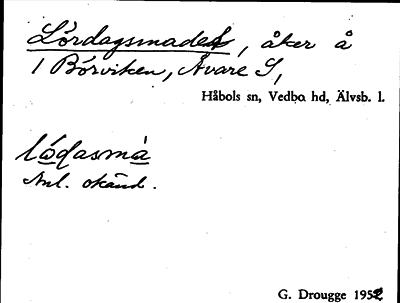 Lördagsmaden, åker å
1 Börviken, Åvare S,
Håbols sn, Vedbo hd, Älvsb. l.
lǫ́dasmà
Anl. okänd.
G. Drougge 1952